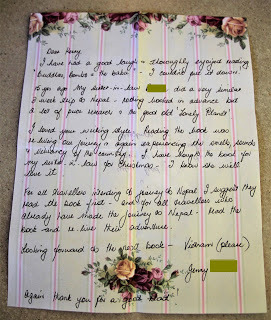 Dear Kerry,
I have had a good laugh & thoroughly enjoyed reading
Buddhas, Bombs & the Babu - I couldn't put it down.
yrs ago My sister-in-law did a very similar
week step to Nepal - nothing booked in advance but
a lot of prior research & the good old 'Lonely Planet'
I loved your writing style. Reading the book was
reliving our journey - again experiencing the smells, sounds
& vibrancy of the country. I have bought the book for
my sister-in-law for Christmas - I know she will
love it.
For all travellers intending to journey to Nepal I suggest they
read the book first - and for all travellers who
already have made the journey to Nepal - read the
book and re-live their adventure.
Looking forward to the next book - Vietnam (please)
Jenny
Again thank you for a good read.